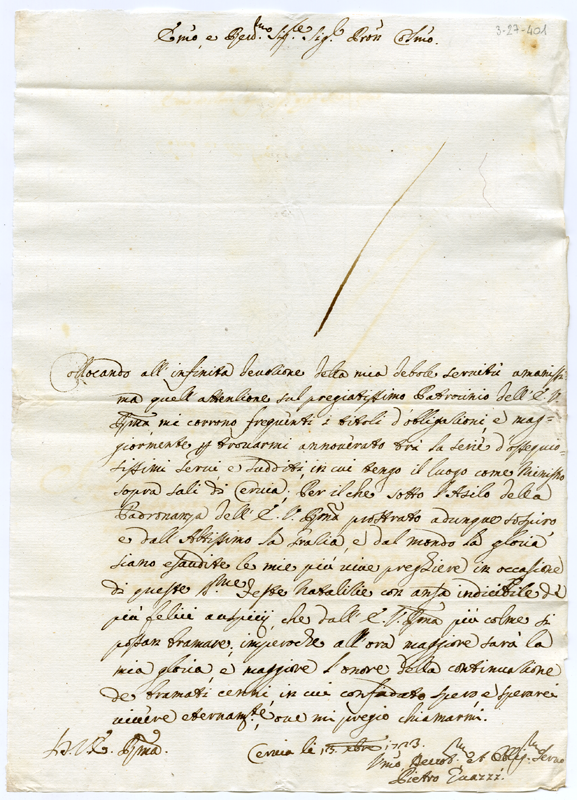 3-27-401
Emo, e Revd.mo Sig.re Sig.r Pron Colmo.
Collocando all'infinita deuotione della mia debole seruitù umanissi-
ma quell'attentione sul pregiatissimo Patrocinio dell'E. V.
Rma mi corrono frequenti i titoli d'obligationi e mag-
giormente trouarmi annouerato trà la serie d'ossequio-
sissimi serui e sudditi, in cui tengo il luogo come Ministro
sopra sali di Ceruia. Per il che sotto l'Asilo della
Padronanza dell'E. V. Rma prostrato adunque sospiro
e dall'Altissimo la gratia, e dal mondo la gloria
siano esaudite le mie più viue preghiere in occasione
di queste S.me Feste natalitie con ansa indicibile de
più felici auspicij, che dall'E. V. Rma più colme si
possan bramare, imperoche all'ora maggiore sarà la
mia gloria e maggiore l'onore della continuatione
de bramati cenni in cui confidato spero e sperare
viuere eternamte, oue mi pregio chiamarmi.
D. V. E. Rma. Ceruia li Xbre 1723.
Vmo Deuot.mo et Oblig.mo Seruo
Pietro Guazzi